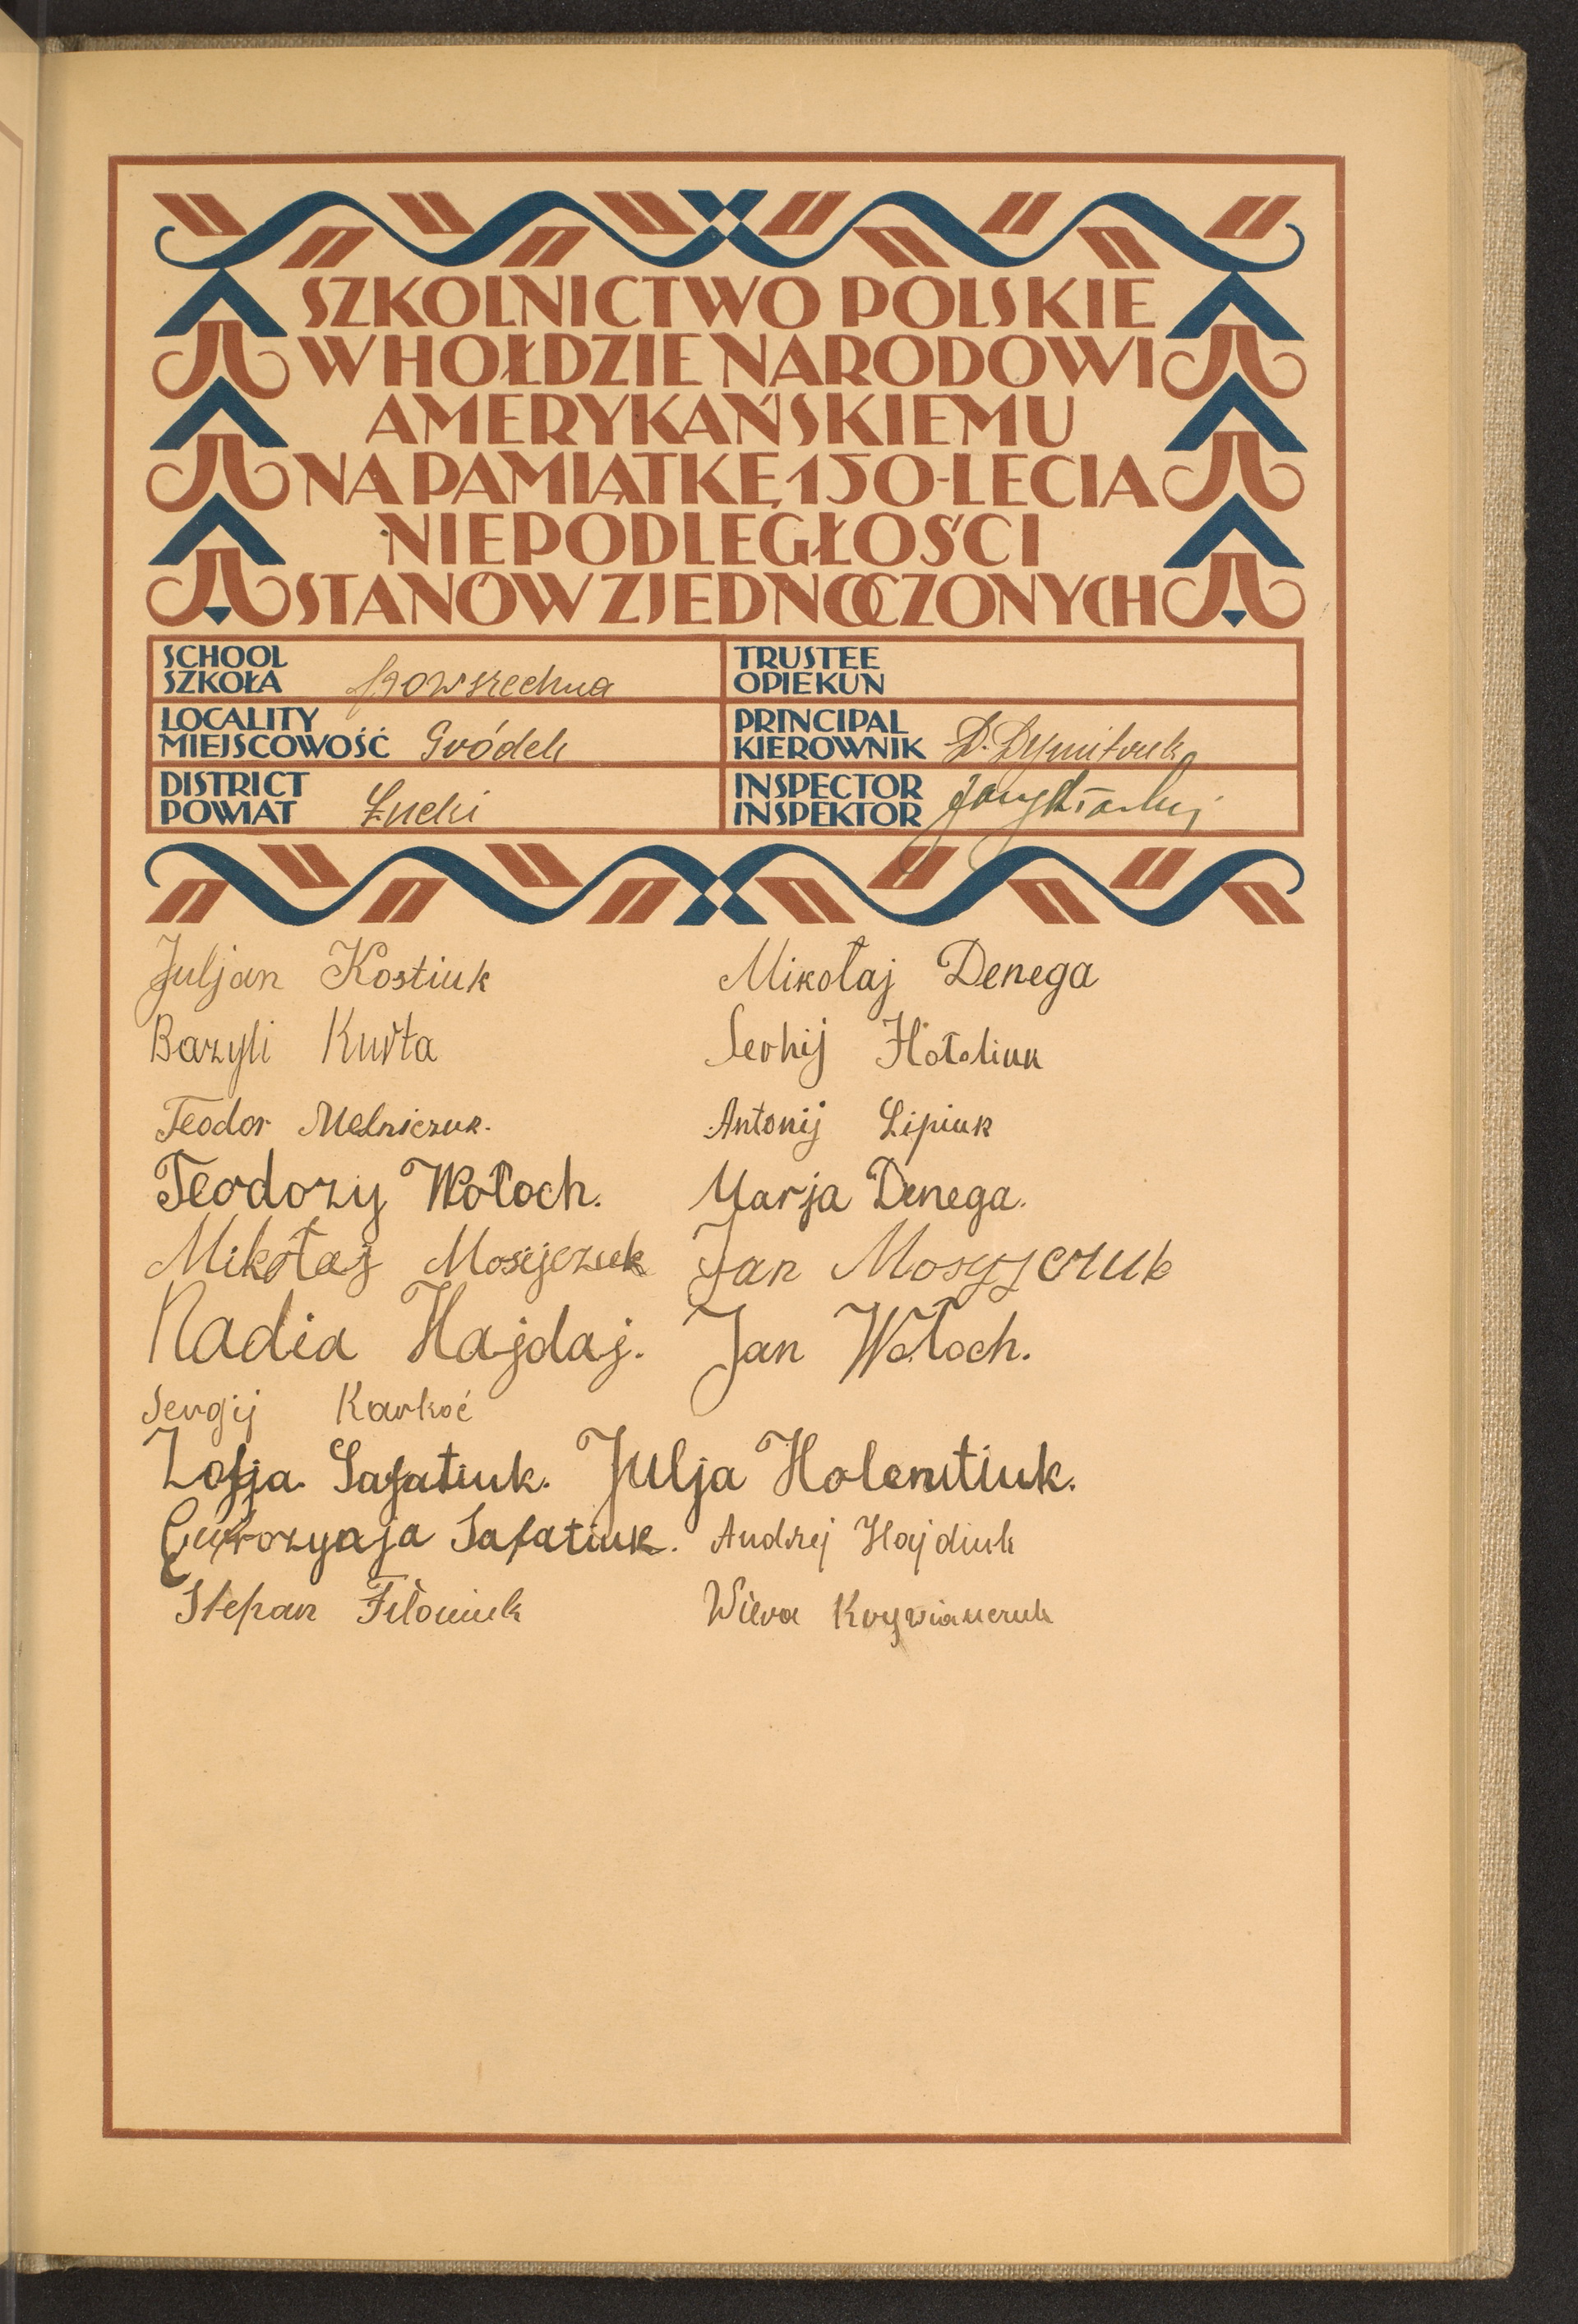 SZKOLNICTWO POLSKIE
W HOŁDZIE NARODOWI
AMERYKAŃSKIEMU
NA PAMIĄTKĘ 150-LECIA
NIEPODLEGŁOŚCI
STANÓW ZJEDNOCZONYCH
SCHOOL
SZKOŁA powszechna
TRUSTEE
OPIEKUN
LOCALITY
MIEJSCOWOŚĆ Gródek
PRINCIPAL
KIEROWNIK D. Dymitruk
DISTRICT
POWIAT Łucki
INSPECTOR
INSPEKTOR
Juljan Kostiuk
Mikołaj Denega
Bazyli Kurta
Serhij
Teodor Melniczuk.
Antonij Lipiuk
Teodozy Wołoch.
Marja Denega.
Mikołaj Mosijczuk
Jan Mosyjczuk
Nadia Hajdaj.
Jan Wołoch.
Sergij Karkoć
Zofja Safatiuk.
Julja Holemtiuk.
Safatiuk.
Andrzej Hajdiuk
Stepan Filoniuk
Wiera Krywianczuk